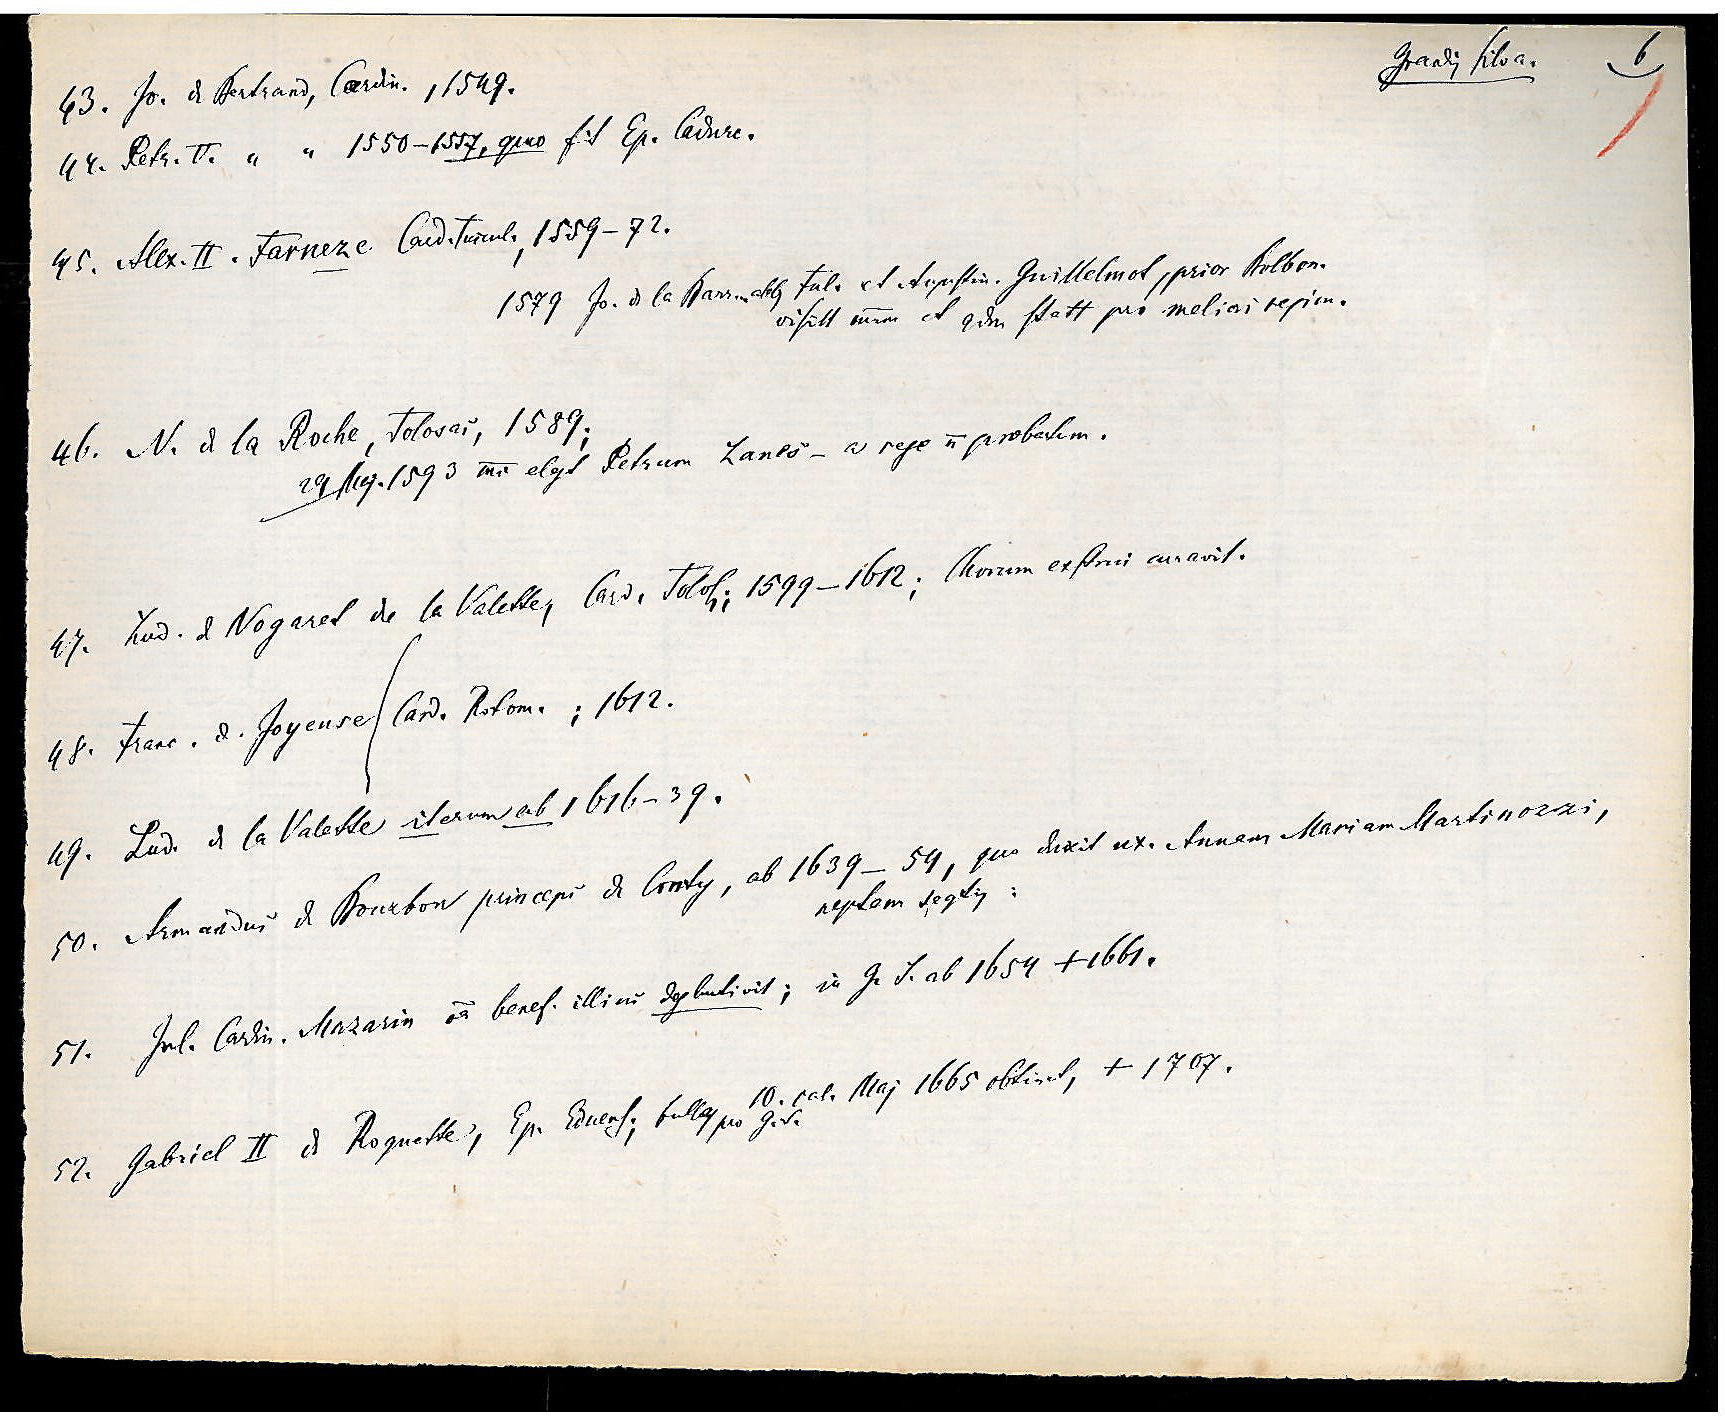 Grandis Silva. 6
43. Jo. de Bertrand, Cardin., 1549.
44. Petr. V. " " 1550–1557, quo fit Ep. Cadurc.
45. Alex. II. Farneze Card. Tuscul., 1559–72.
1579 Jo. de la Barr. abb Ful. et Augustin. Guillelmot, prior Bolbon.
visitt et qdm statt pro meliori regim.
46. N. de la Roche, Tolosas, 1589;
29 Aug. 1593 elgt Petrum Lanes – a rege n̄ probatum.
47. Lud. de Nogaret de la Valette, Card. Tolos.; 1599–1612; Chorum exstrui curavit.
48. Franc. d. Joyeuse Card. Rotom.; 1612.
49. Lud. de la Valette iterum ab 1616–39.
50. Armandus de Bourbon princeps de Conty, ab 1639–54, quo duxit ux. Annam Mariam Martinozzi,
neptem seqtis:
51. Jul. Cardin. Mazarin oā benef. illius; in G. S. ab 1654 + 1661.
52. Gabriel II de Roquette, Ep. Eduens.; bullas pro G. S. 10. cal. Maj 1665 obtinet, + 1707.